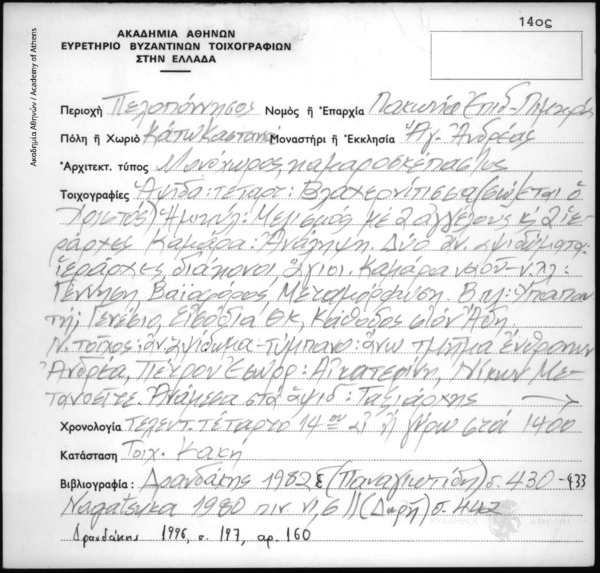 14ος
ΑΚΑΔΗΜΙΑ ΑΘΗΝΩΝ
ΕΥΡΕΤΗΡΙΟ ΒΥΖΑΝΤΙΝΩΝ ΤΟΙΧΟΓΡΑΦΙΩΝ
ΣΤΗΝ ΕΛΛΑΔΑ
Ακαδημία Αθηνών / Academy of Athens
Περιοχή Πελοπόννησος Νομός ἤ Ἐπαρχία Λακωνία Ἐπιδ-Λιμηρᾶς
Πόλη ἤ Χωριό Κάτω Καστανιά Μοναστήρι ἤ Ἐκκλησία Ἅγ. Ἀνδρέας
Ἀρχιτεκτ. τύπος Μονόχωρος καμαροσκέπαστος
Τοιχογραφίες Ἁψίδα: τέταρτ: Βλαχερνίτισσα (σώζεται ὁ
Χριστός) Ἡμικύλ: Μελισμός μέ 2 ἀγγέλους κ 2 ἱε-
ράρχες Καμάρα: Ἀνάληψη. Δύο ἀν. ἀψιδώματα:
ἱεράρχες, διάκονοι, ἅγιοι. Καμάρα ναοῦ-ν.πλ:
Γέννηση, Βαϊοφόρος, Μεταμόρφωση. Β.πλ: Ὑπαπαν
τή, Γενέσιο, Εἰσόδια Θκ, Κάθοδος στόν Ἅδη
Ν. τοῖχος: ἀν. ἀψίδωμα-τύμπανο: ἄνω τμῆμα ἔνθρονου
Ἀνδρέα, Πέτρου Ἐσωρ: Αἰκατερίνη, Νίκων Με-
τανοεῖτε Ἀνάμεσα στά ἀψιδ: Ταξιάρχης →
Χρονολογία Τελευτ. τέταρτο 14ου αἰ ἤ γύρω στά 1400
Κατάσταση Τοιχ. Κακή
Βιβλιογραφία : Δρανδάκης 1982 (Παναγιωτίδη) σ. 430-433
Nagatsuka 1980 πιν VI, 6 // (Δωρῆ) σ. 442
Δρανδάκης 1996, σ. 197, αρ. 160